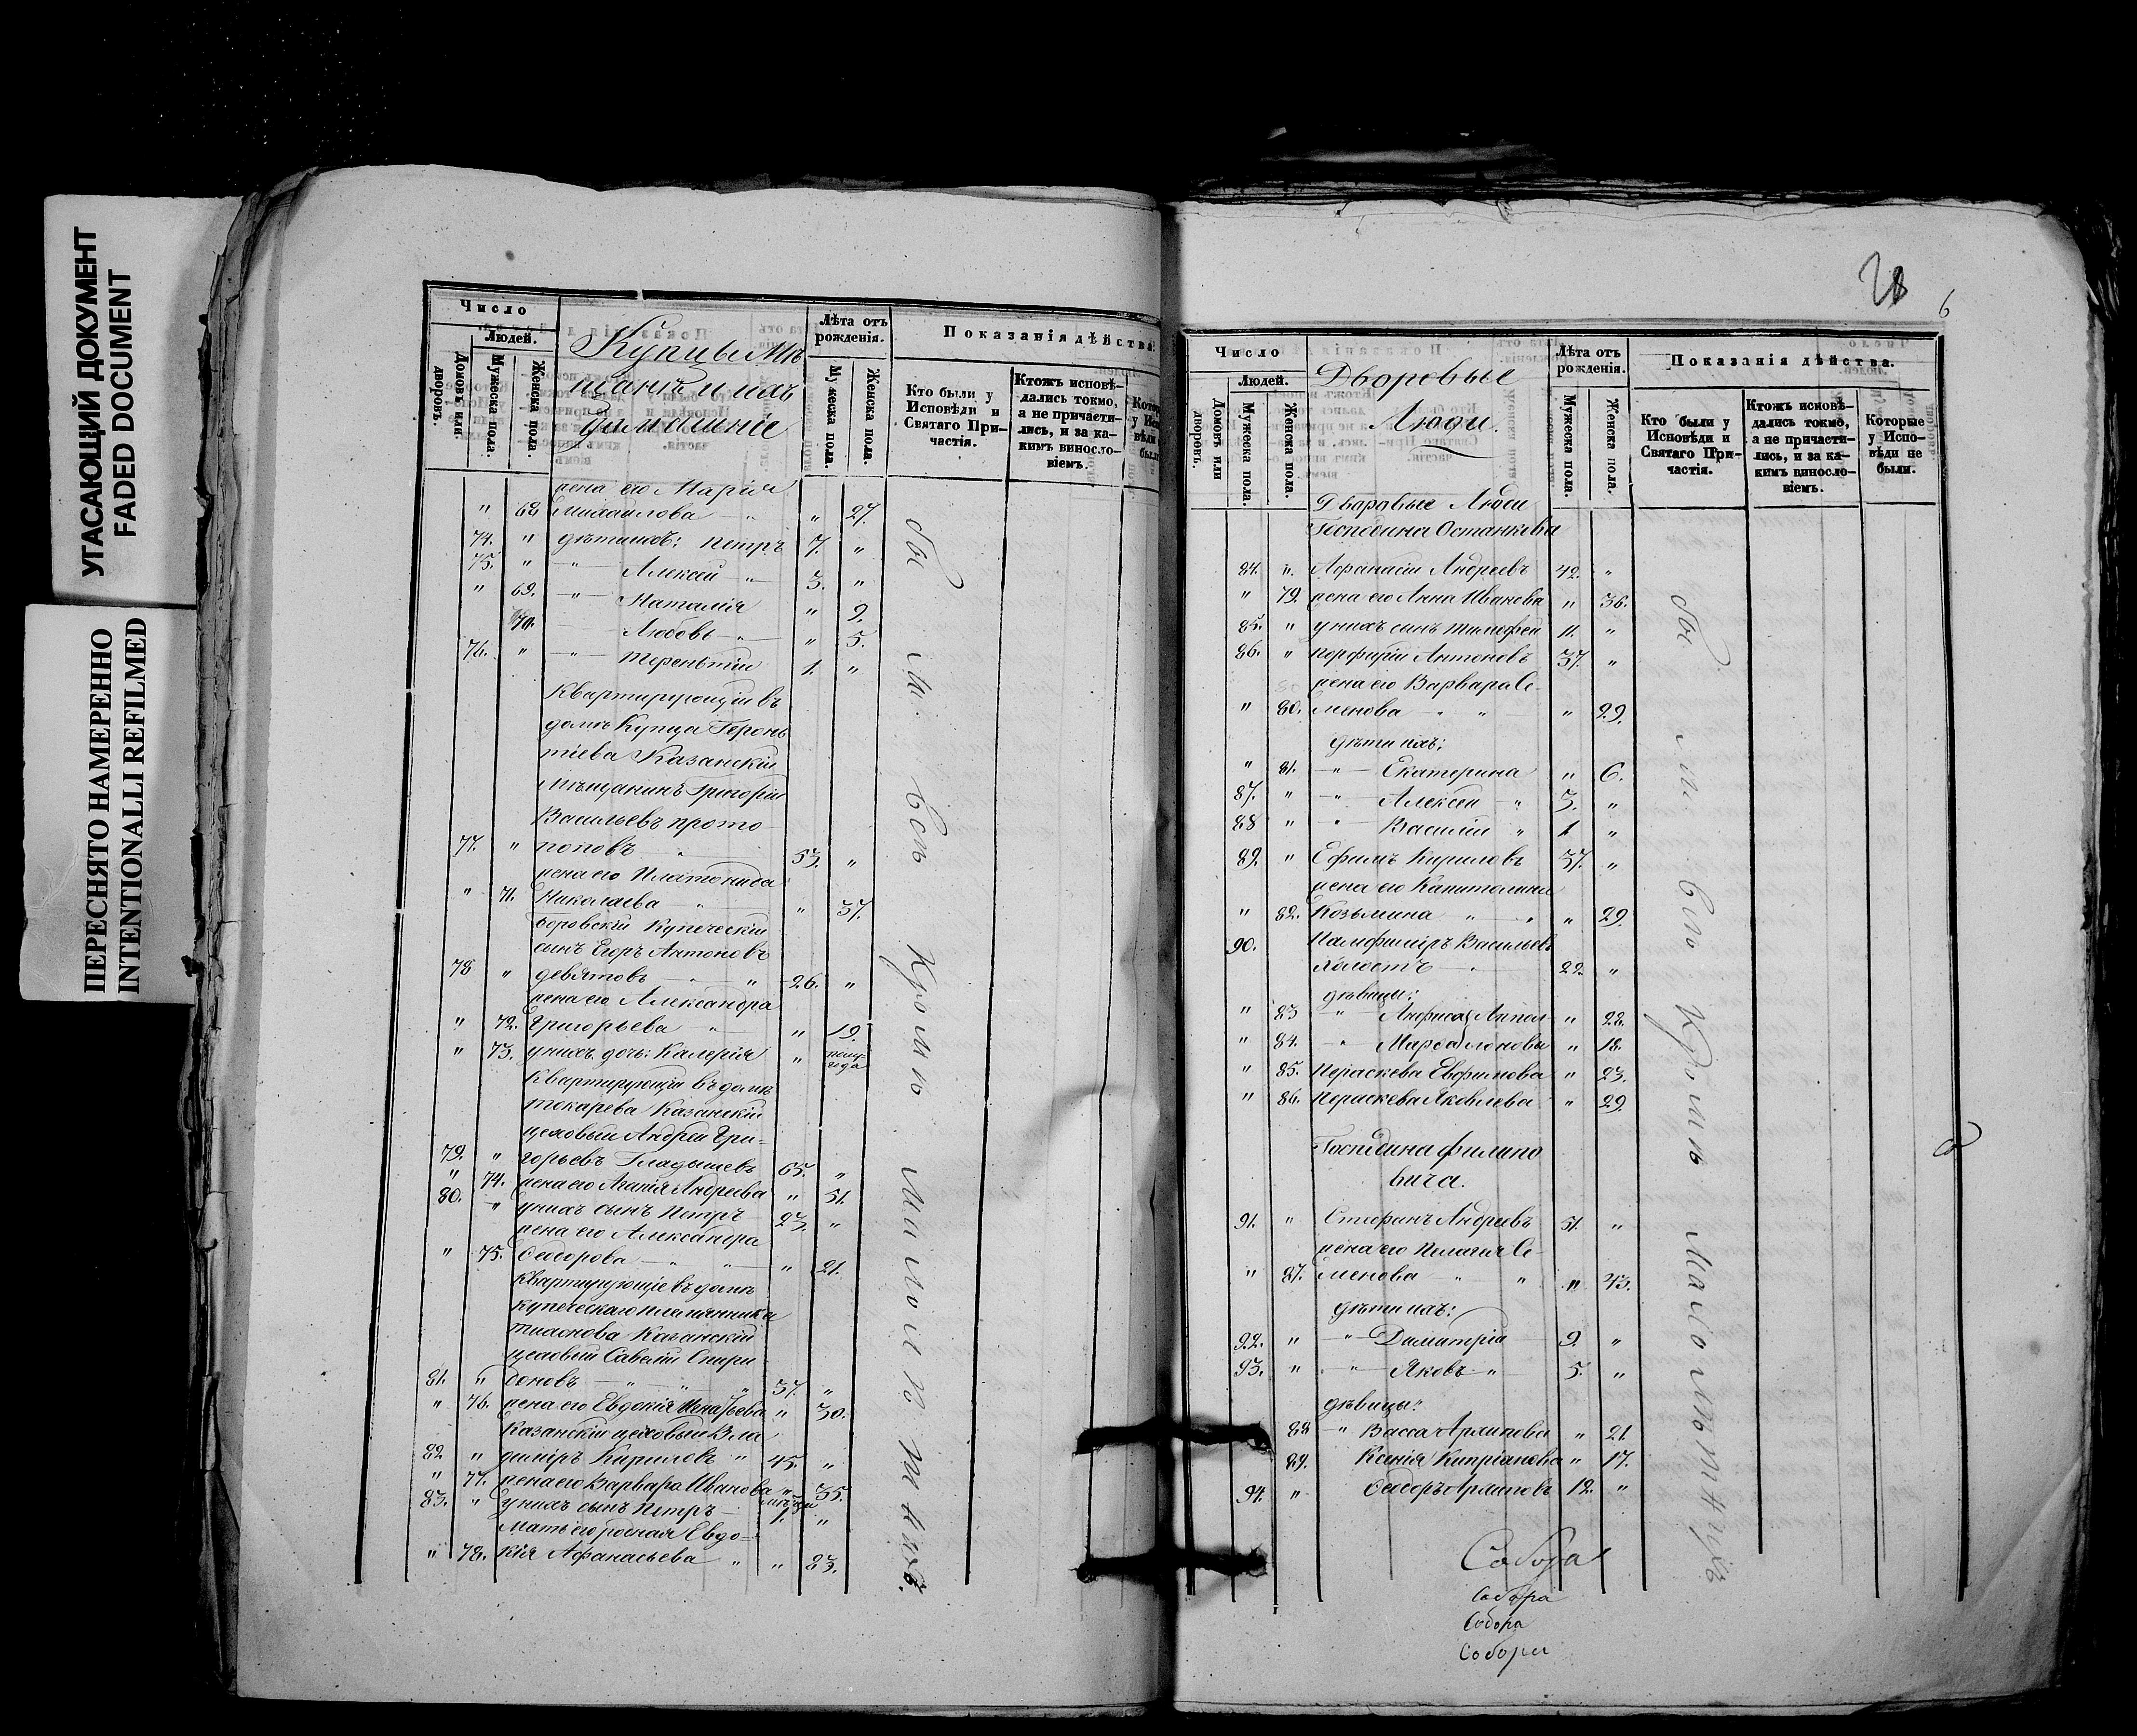 УГАСАЮЩИЙ ДОКУМЕНТ
FADED DOCUMENT
ПЕРЕСНЯТО НАМЕРЕННО
INTENTIONALLI REFILMED
Число
Людей.
Домовъ или дворовъ.
Мужеска пола.
Женска пола.
Купцы Мѣ
щане и ихъ
домашніе
Лѣта отъ рожденія.
Мужеска пола.
Женска пола.
Показанія дѣйства.
Кто были у Исповѣди и Святаго При-частія.
Ктожъ исповѣ-дались токмо, а не причасти-лись, и за ка-кимъ винosло-віемъ.
жена его Марія
" 68 Михаилова " " 27.
74. " дѣти ихъ: Петръ 7. "
75. " " Алексей " 3. "
" 69. " Наталія " 9.
70. Любовь " " 5.
76. " " Терентій 1. "
Квартирующій въ
домѣ Купца Герон
тіева Казанскій
Мѣщанинъ Григорій
Васильевъ прото
77. " поповъ " 53. "
жена его Платонида
" 71. Николаева " " 37.
Боровскій Купеческій
сынъ Егоръ Антоновъ
78 " девятовъ " 26. "
жена его Александра
" 72. Григорьева " " 19.
" 73. у нихъ дочь: Калерія " полу-года
Квартирующій въ домѣ
Токарева Казанскій
цеховый Андрей Гри-
79. " горьевъ Гладышевъ 65. "
" 74. жена его Агапія Андреева " 51.
80. " у нихъ сынъ Петръ 23. "
жена его Александра
" 75. Федорова " " " 21.
Квартирующіе въ домѣ
купеческаго племянника
Казанскій
цеховый Савелій Спири
81. " доновъ " " " 37. "
" 76. жена его Евдокія Игнатьева " 30.
Казанскій цеховый Вла
82 " диміръ Кириловъ " 45. "
" 77. жена его Варвара Иванова " 35.
83. " у нихъ сынъ Петръ 1. "
Мать его родная Евдо-
" 78. кія Афанасьева " " 83.
бы ли всѣ Кромѣ милолѣтнихъ.
28
6
Число
Людей.
Домовъ или дворовъ.
Мужеска пола.
Женска пола.
Дворовые
Люди.
Лѣта отъ рожденія.
Мужеска пола.
Женска пола.
Показанія дѣйства.
Кто были у Исповѣди и Святаго При-частія.
Ктожъ исповѣ-дались токмо, а не причасти-лись, и за ка-кимъ винosло-віемъ.
Которые у Испо-вѣди не были.
Дворовые Люди
Господина Останкова
84. " Афанасій Андреевъ 42. "
" 79. жена его Анна Иванова " 36.
85. " у нихъ сынъ Тимофей 11. "
86. " Порфирій Антоновъ 37. "
жена его Варвара Се-
" 80. менова " " " 29.
дѣти ихъ:
" 81. " Екатерина " 6.
87. " " Алексей " 3. "
88 " " Василій " 1 "
89. " Ефимъ Кириловъ 37. "
жена его Капитолина
" 82. Козьмина " " " 29.
90. Памфиліръ Васильевъ
холостъ " 22. "
дѣвицы:
" 83 " Анфиса Антил " 22.
" 84. " Марфа лонова " 18.
" 85. Параскева Евфимова " 23.
" 86. Параскева Яковлева " 29.
Господина Филипо
вича.
91. " Стефанъ Андреевъ 51. "
жена его Пелагия Се-
" 87. менова " " " 43.
дѣти ихъ:
92. " " Диматрій 9. "
93. " " Яковъ " 5. "
дѣвицы:
88 " Васса Архипова " 21.
89. Ксенія Кипріанова " 17.
94. " Федоръ Архиповъ 12. "
бы ли всѣ Кромѣ малолѣтнихъ
Собора
Собора
Собора
Собори